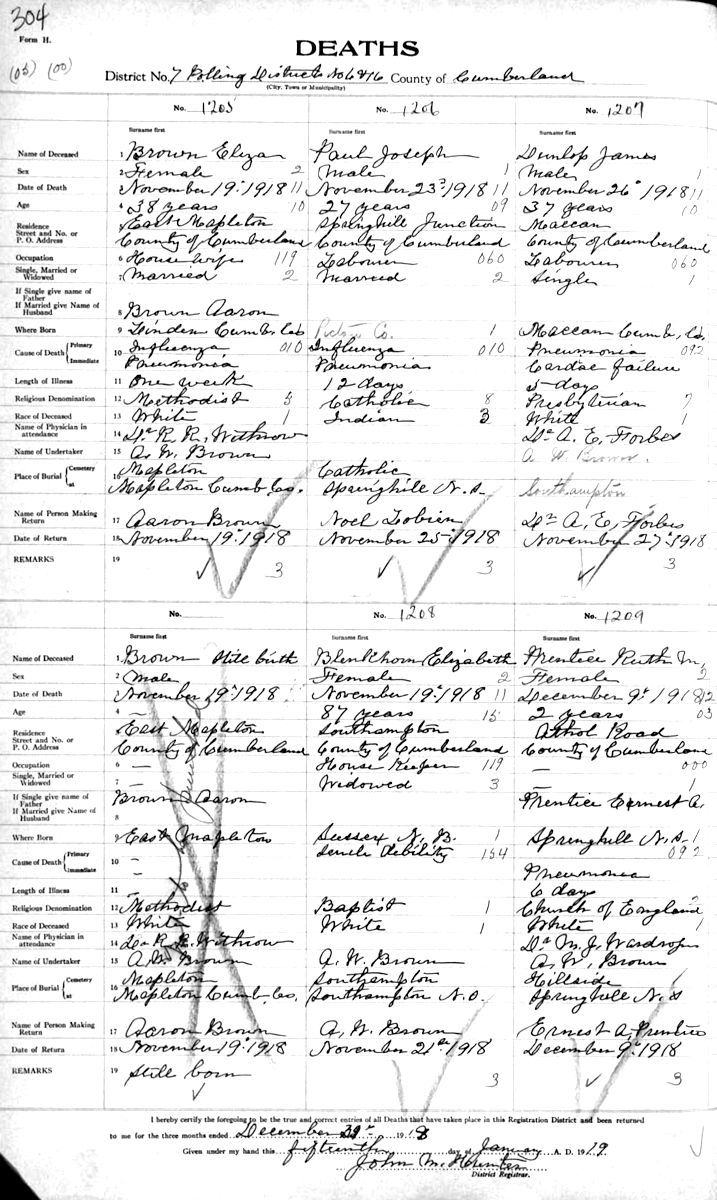 304
Form H.
(03) (00)
DEATHS
District No. 7 Polling Districts No 6 & 16 County of Cumberland
(City, Town or Municipality)
No. 1205 No. 1206 No. 1207
Surname first Surname first Surname first
Name of Deceased 1 Brown Eliza Paul Joseph Dunlop James
Sex 2 Female 2 Male 1 Male 1
Date of Death 3 November 19th 1918 11 November 23d 1918 11 November 26th 1918 11
Age 4 38 years 10 27 years 09 37 years 10
Residence Street and No. or P. O. Address 5 East Mapleton Springhill Junction Maccan
County of Cumberland County of Cumberland County of Cumberland
Occupation 6 House wife 119 Labourer 060 Labourer 060
Single, Married or Widowed 7 Married 2 Married 2 Single 1
If Single give name of Father
If Married give Name of Husband 8 Brown Aaron
Where Born 9 Linden Cumb. Co Pictou Co. 1 Maccan Cumb, Co.
Cause of Death Primary 10 Influenza 010 Influenza 010 Pneumonia 092
Immediate Pneumonia Pneumonia Cardac failure
Length of Illness 11 One week 12 days 5 days
Religious Denomination 12 Methodist 5 Catholic 8 Presbyterian 7
Race of Deceased 13 White 1 Indian 3 White 1
Name of Physician in attendance 14 Dr R. R. Withrow Dr A. E. Forbes
Name of Undertaker 15 A. W. Brown A W Brown.
Place of Burial Cemetery 16 Mapleton Catholic
at Mapleton Cumb. Co. Springhill N. S. Southampton
Name of Person Making Return 17 Aaron Brown Noel Dr A, E, Forbes
Date of Return 18 November 19th 1918 November 25th 1918 November 27th 1918
REMARKS 19 ✓ 3 ✓ 3 ✓ 3
No. No. 1208 No. 1209
Surname first Surname first Surname first
Name of Deceased 1 Brown Still birth Blenkhorn Elizabeth Prentice Ruth M,
Sex 2 Male Female 2 Female 2
Date of Death 3 November 19th 1918 November 19th 1918 11 December 9th 1918 12
Age 4 – 87 years 15 2 years 03
Residence Street and No. or P. O. Address 5 East Mapleton Southampton Athol Road
County of Cumberland County of Cumberland County of Cumberland
Occupation 6 – House Keeper 119 – 000
Single, Married or Widowed 7 – Widowed 3 – 1
If Single give name of Father Brown Aaron Prentice Earnest A,
If Married give Name of Husband 8
Where Born 9 East Mapleton Sussex N. B. 1 Springhill N. S. 1
Cause of Death Primary 10 – Senile debility 154 092
Immediate – Pneumonia
Length of Illness 11 – 6 days
Religious Denomination 12 Methodist Baptist 1 Church of England 2
Race of Deceased 13 White White 1 White 1
Name of Physician in attendance 14 Dr R. R. Withrow Dr M. J. Wardrope
Name of Undertaker 15 A. W. Brown A. W. Brown A. W, Brown
Place of Burial Cemetery 16 Mapleton Southampton Hillside
at Mapleton Cumb. Co. Southampton N. S. Springhill N. S
Name of Person Making Return 17 Aaron Brown A, W. Brown Ernest A, Prentice
Date of Return 18 November 19th 1918 November 21st 1918 December 9th 1918
REMARKS 19 Still born 3 ✓ 3
✓
I hereby certify the foregoing to be the true and correct entries of all Deaths that have taken place in this Registration District and been returned
to me for the three months ended December 31st 1918
Given under my hand this fifteenth day of January A. D. 1919.
John M. Hunter
District Registrar.